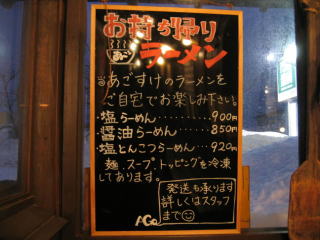 お持ち帰り
あご ラーメン
当あごすけのラーメンを
ご自宅でお楽しみ下さい。
・塩らーめん・・・・・・・・・900円
・醤油らーめん・・・・・・・850円
・塩とんこつらーめん・・・920円
麺、スープ、トッピングを冷凍
してあります。
発送も承ります
詳しくはスタッフ
まで